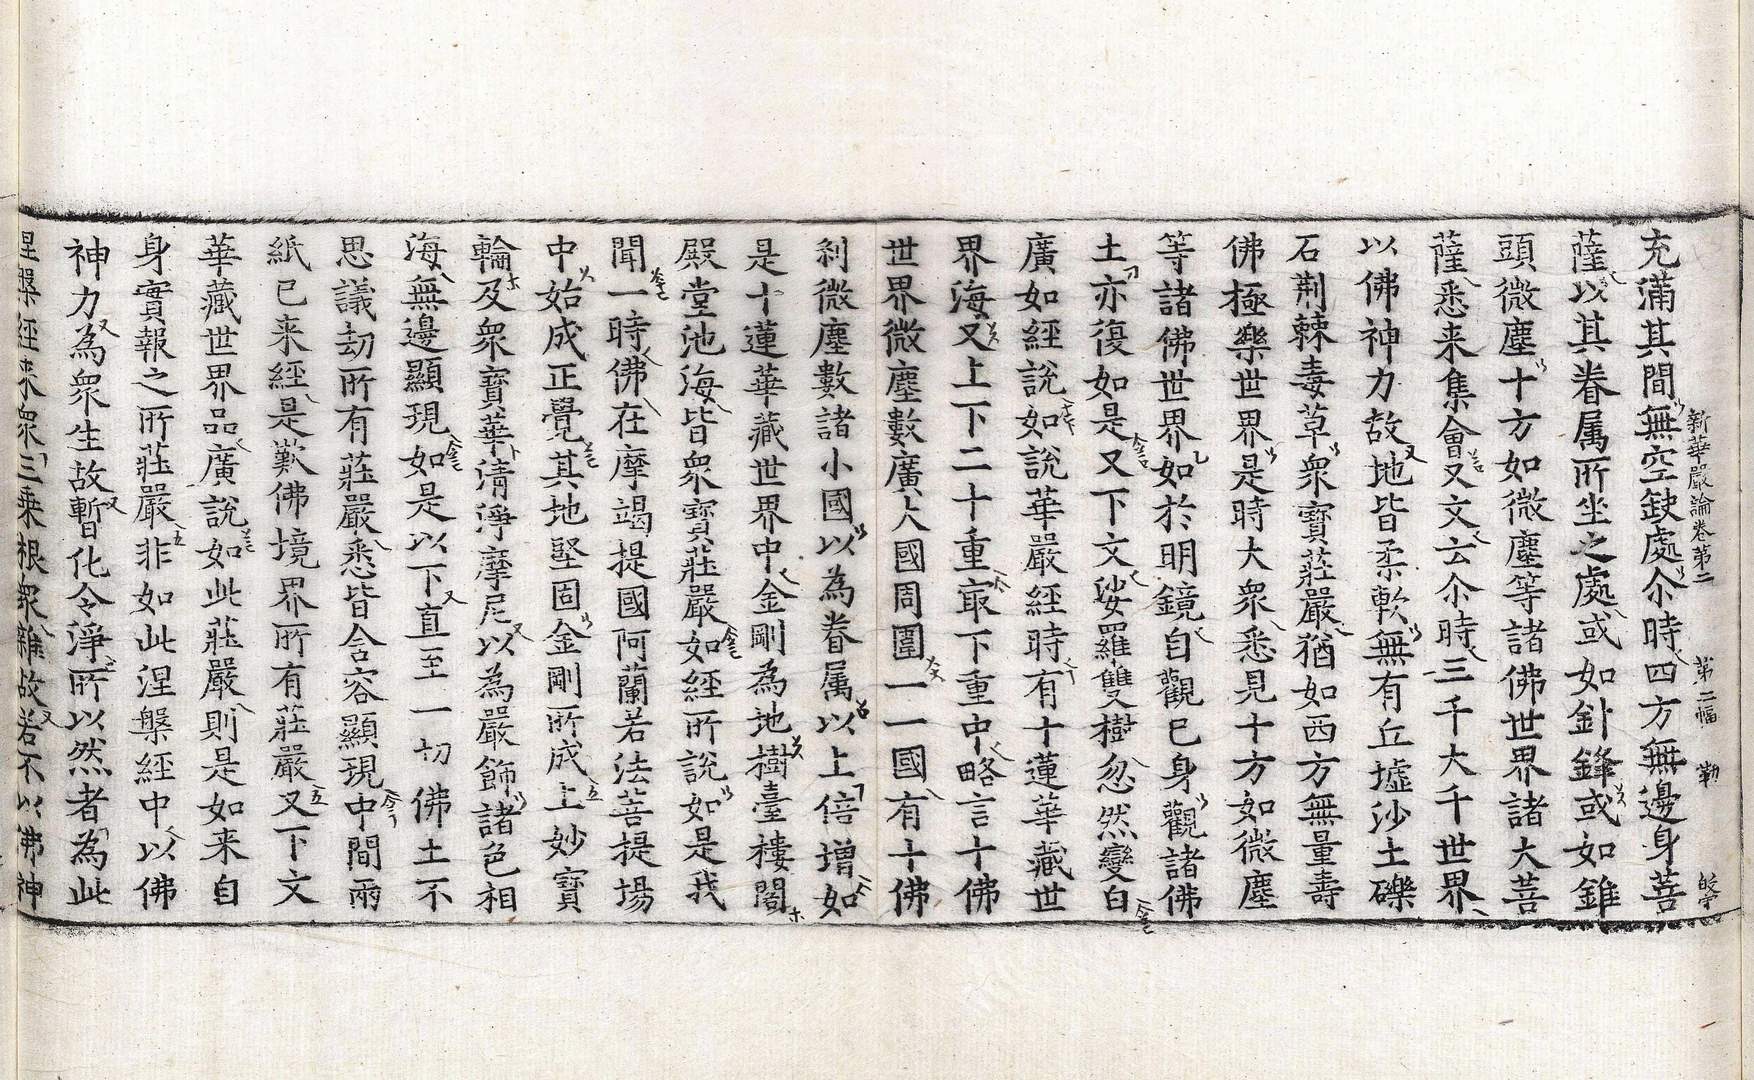 新華嚴論卷第二 第二幅 勒
充滿其間無空缺處尒時四方無邊身菩
薩以其眷属所坐之處或如針鋒或如錐
頭微塵十方如微塵等諸佛世界諸大菩
薩悉来集會又文云尒時三千大千世界
以佛神力故地皆柔軟無有丘墟沙土礫
石荆棘毒草衆寶莊嚴猶如西方無量壽
佛極樂世界是時大衆悉見十方如微塵
等諸佛世界如於明鏡自觀已身觀諸佛
土亦復如是又下文娑羅雙樹忽然變白
廣如經說如說華嚴經時有十蓮華藏世
界海又上下二十重最下重中略言十佛
世界微塵數廣大國周圍一一國有十佛
刹微塵數諸小國以為眷属以上倍增如
是十蓮華藏世界中金剛為地樹臺樓閣
殿堂池海皆衆寶莊嚴如經所說如是我
聞一時佛在摩竭提國阿蘭若法菩提場
中始成正覺其地堅固金剛所成上妙寶
輪及衆寶華清淨摩尼以為嚴飾諸色相
海無邊顯現如是以下直至一切佛土不
思議劫所有莊嚴悉皆含容顯現中間兩
紙已来經是歎佛境界所有莊嚴又下文
華藏世界品廣說如此莊嚴則是如来自
身實報之所莊嚴非如此涅槃經中以佛
神力為衆生故暫化令淨所以然者為此
涅槃經来衆三乗根衆雜故若不以佛神